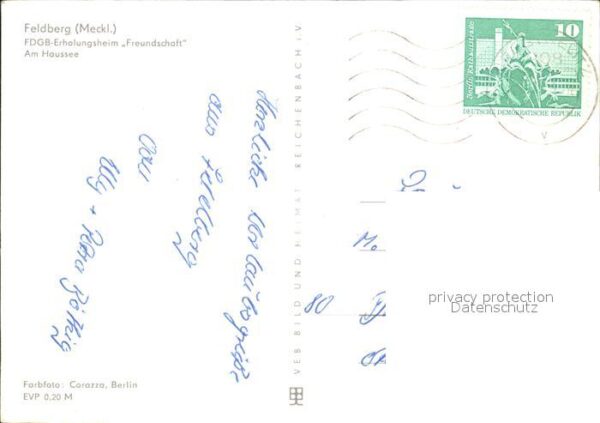 Feldberg (Meckl.)
FDGB-Erholungsheim „Freundschaft"
Am Haussee
Herzliche Urlaubsgrüße
aus Feldberg
von
Elly + Petra
Farbfoto: Carazza, Berlin
EVP 0,20 M
VEB BILD UND HEIMAT REICHENBACH i. V
10
Berlin, Rathausstraße
DEUTSCHE DEMOKRATISCHE REPUBLIK
80
privacy protection
Datenschutz